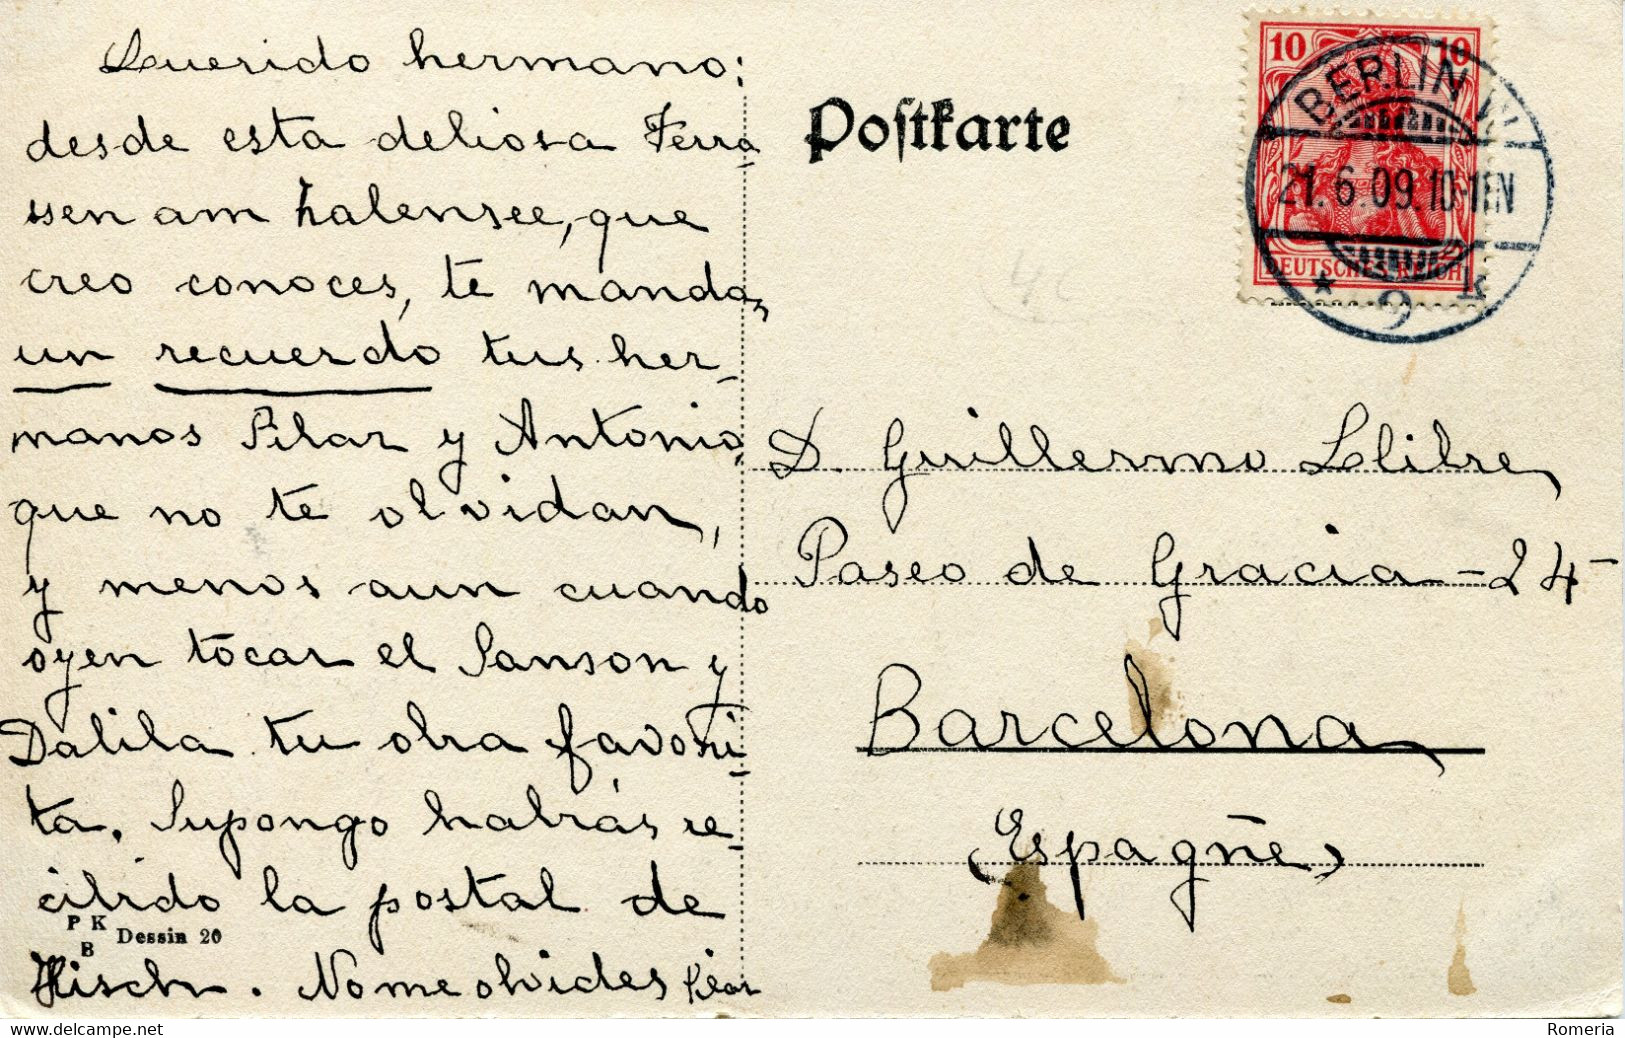 Querido hermano:
desde esta deliosa Terra-
ssen am halensee, que
creo conoces, te mandan
un recuerdo tus her-
manos Pilar y Antonio,
que no te olvidan,
y menos aun cuando
oyen tocar el Sanson y
Dalila tu obra favori-
ta. Supongo habrás re-
cibido la postal de
Nome olvides Pilar
P K
B Dessin 20
Postkarte
10 10
DEUTSCHES REICH
BERLIN W.
21.6.09.10-11N
* 9 k
D. Guillermo Llibre
Paseo de Gracia - 24 -
Barcelona
(Espagñe)
www.delcampe.net
Romeria